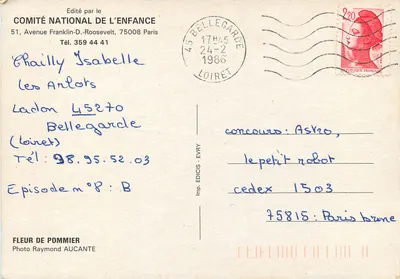 Edité par le
COMITÉ NATIONAL DE L'ENFANCE
51, Avenue Franklin-D.-Roosevelt, 75008 Paris
Tél. 359 44 41
45 BELLEGARDE
17H45
24-2
1986
LOIRET
2,20
Chailly Isabelle
Les Arlots
Ladon 45270
Bellegarde
(Loiret)
Tél : 38.95.52.03
Episode n°8 : B
Imp. EDICIS - EVRY
concours: Astro,
le petit robot
cedex 1503
75815: Paris brune
FLEUR DE POMMIER
Photo Raymond AUCANTE